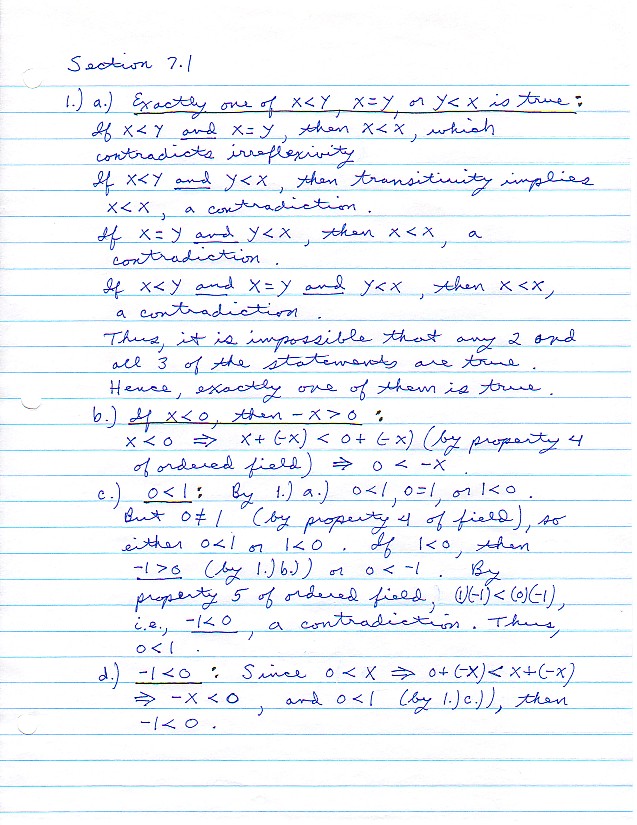 Section 7.1
1.) a.) Exactly one of x<y, x=y, or y<x is true :
If x<y and x=y, then x<x, which
contradicts irreflexivity
If x<y and y<x, then transitivity implies
x<x, a contradiction.
If x=y and y<x, then x<x, a
contradiction.
If x<y and x=y and y<x, then x<x,
a contradiction.
Thus, it is impossible that any 2 and
all 3 of the statements are true.
Hence, exactly one of them is true.
b.) If x<0, then -x>0 :
x<0 ⇒ x+(-x) < 0+(-x) (by property 4
of ordered field) ⇒ 0 < -x.
c.) 0<1 : By 1.) a.) 0<1, 0=1, or 1<0.
But 0≠1 (by property 4 of field), so
either 0<1 or 1<0. If 1<0, then
-1>0 (by 1.) b.)) or 0<-1. By
property 5 of ordered field, (1)(-1)<(0)(-1),
i.e., -1<0, a contradiction. Thus,
0<1.
d.) -1<0 : Since 0<x ⇒ 0+(-x)<x+(-x)
⇒ -x<0, and 0<1 (by 1.) c.)), then
-1<0.